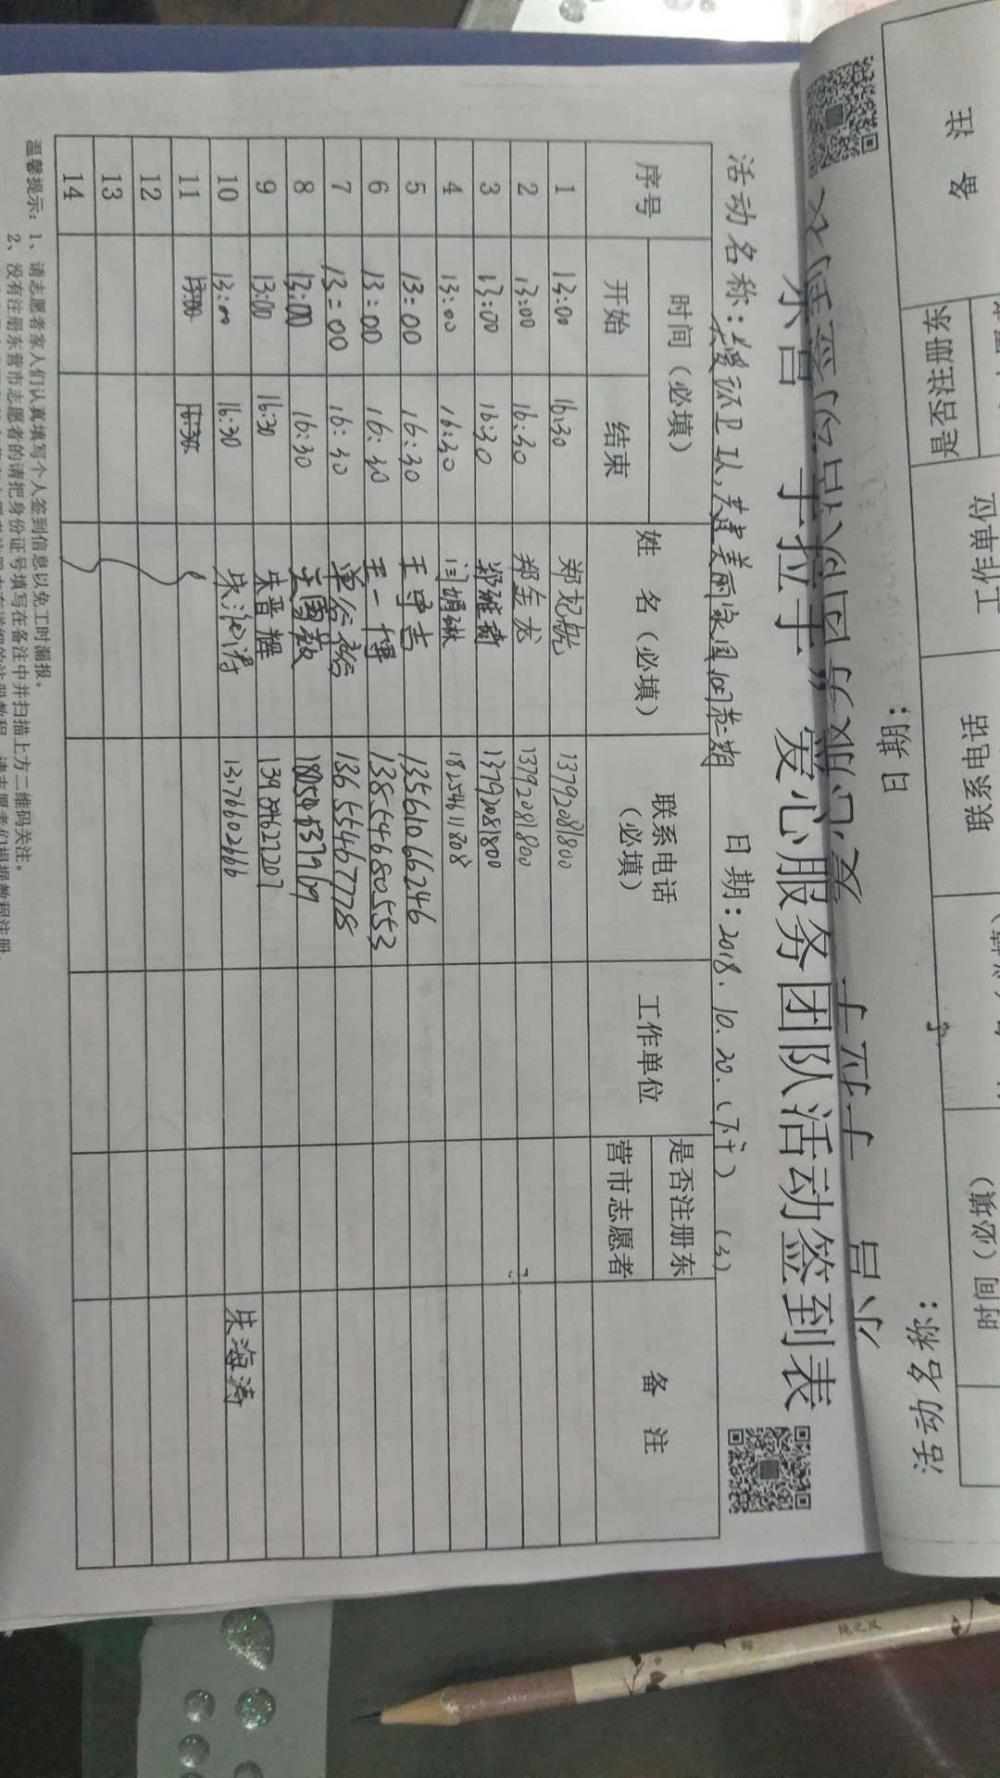 手拉手”爱心服务团队活动签到表
活动名称：关爱环卫工人，共建美丽家园 日期：2018.10.20.（下午）（3）
序号 时间（必填） 姓 名（必填） 联系电话（必填） 工作单位 是否注册东营市志愿者 备 注
开始 结束
1 13:00 16:30 13792081800
2 13:00 16:30 郑金龙 13792081800
3 13:00 16:30 郑雅琦 13792081800
4 13:00 16:30 闫娟琳 18254611808
5 13:00 16:30 王守吉 13561066246
6 13:00 16:30 王一博 13854680553
7 13:00 16:30 单谷裕 13655467778
8 13:00 16:30
9 13:00 16:30 朱晋辉
10 13:00 16:30 朱海涛 13176602666 朱海涛
11 13:00 16:30
12
13
14
温馨提示：1、请志愿者家人们认真填写个人签到信息以免工时漏报。
2、没有注册东营市志愿者的请把身份证号填写在备注中并扫描上方二维码关注。
备 注
是否注册东
工作单位
联系电话
时间（必填）
日期：
活动名称：